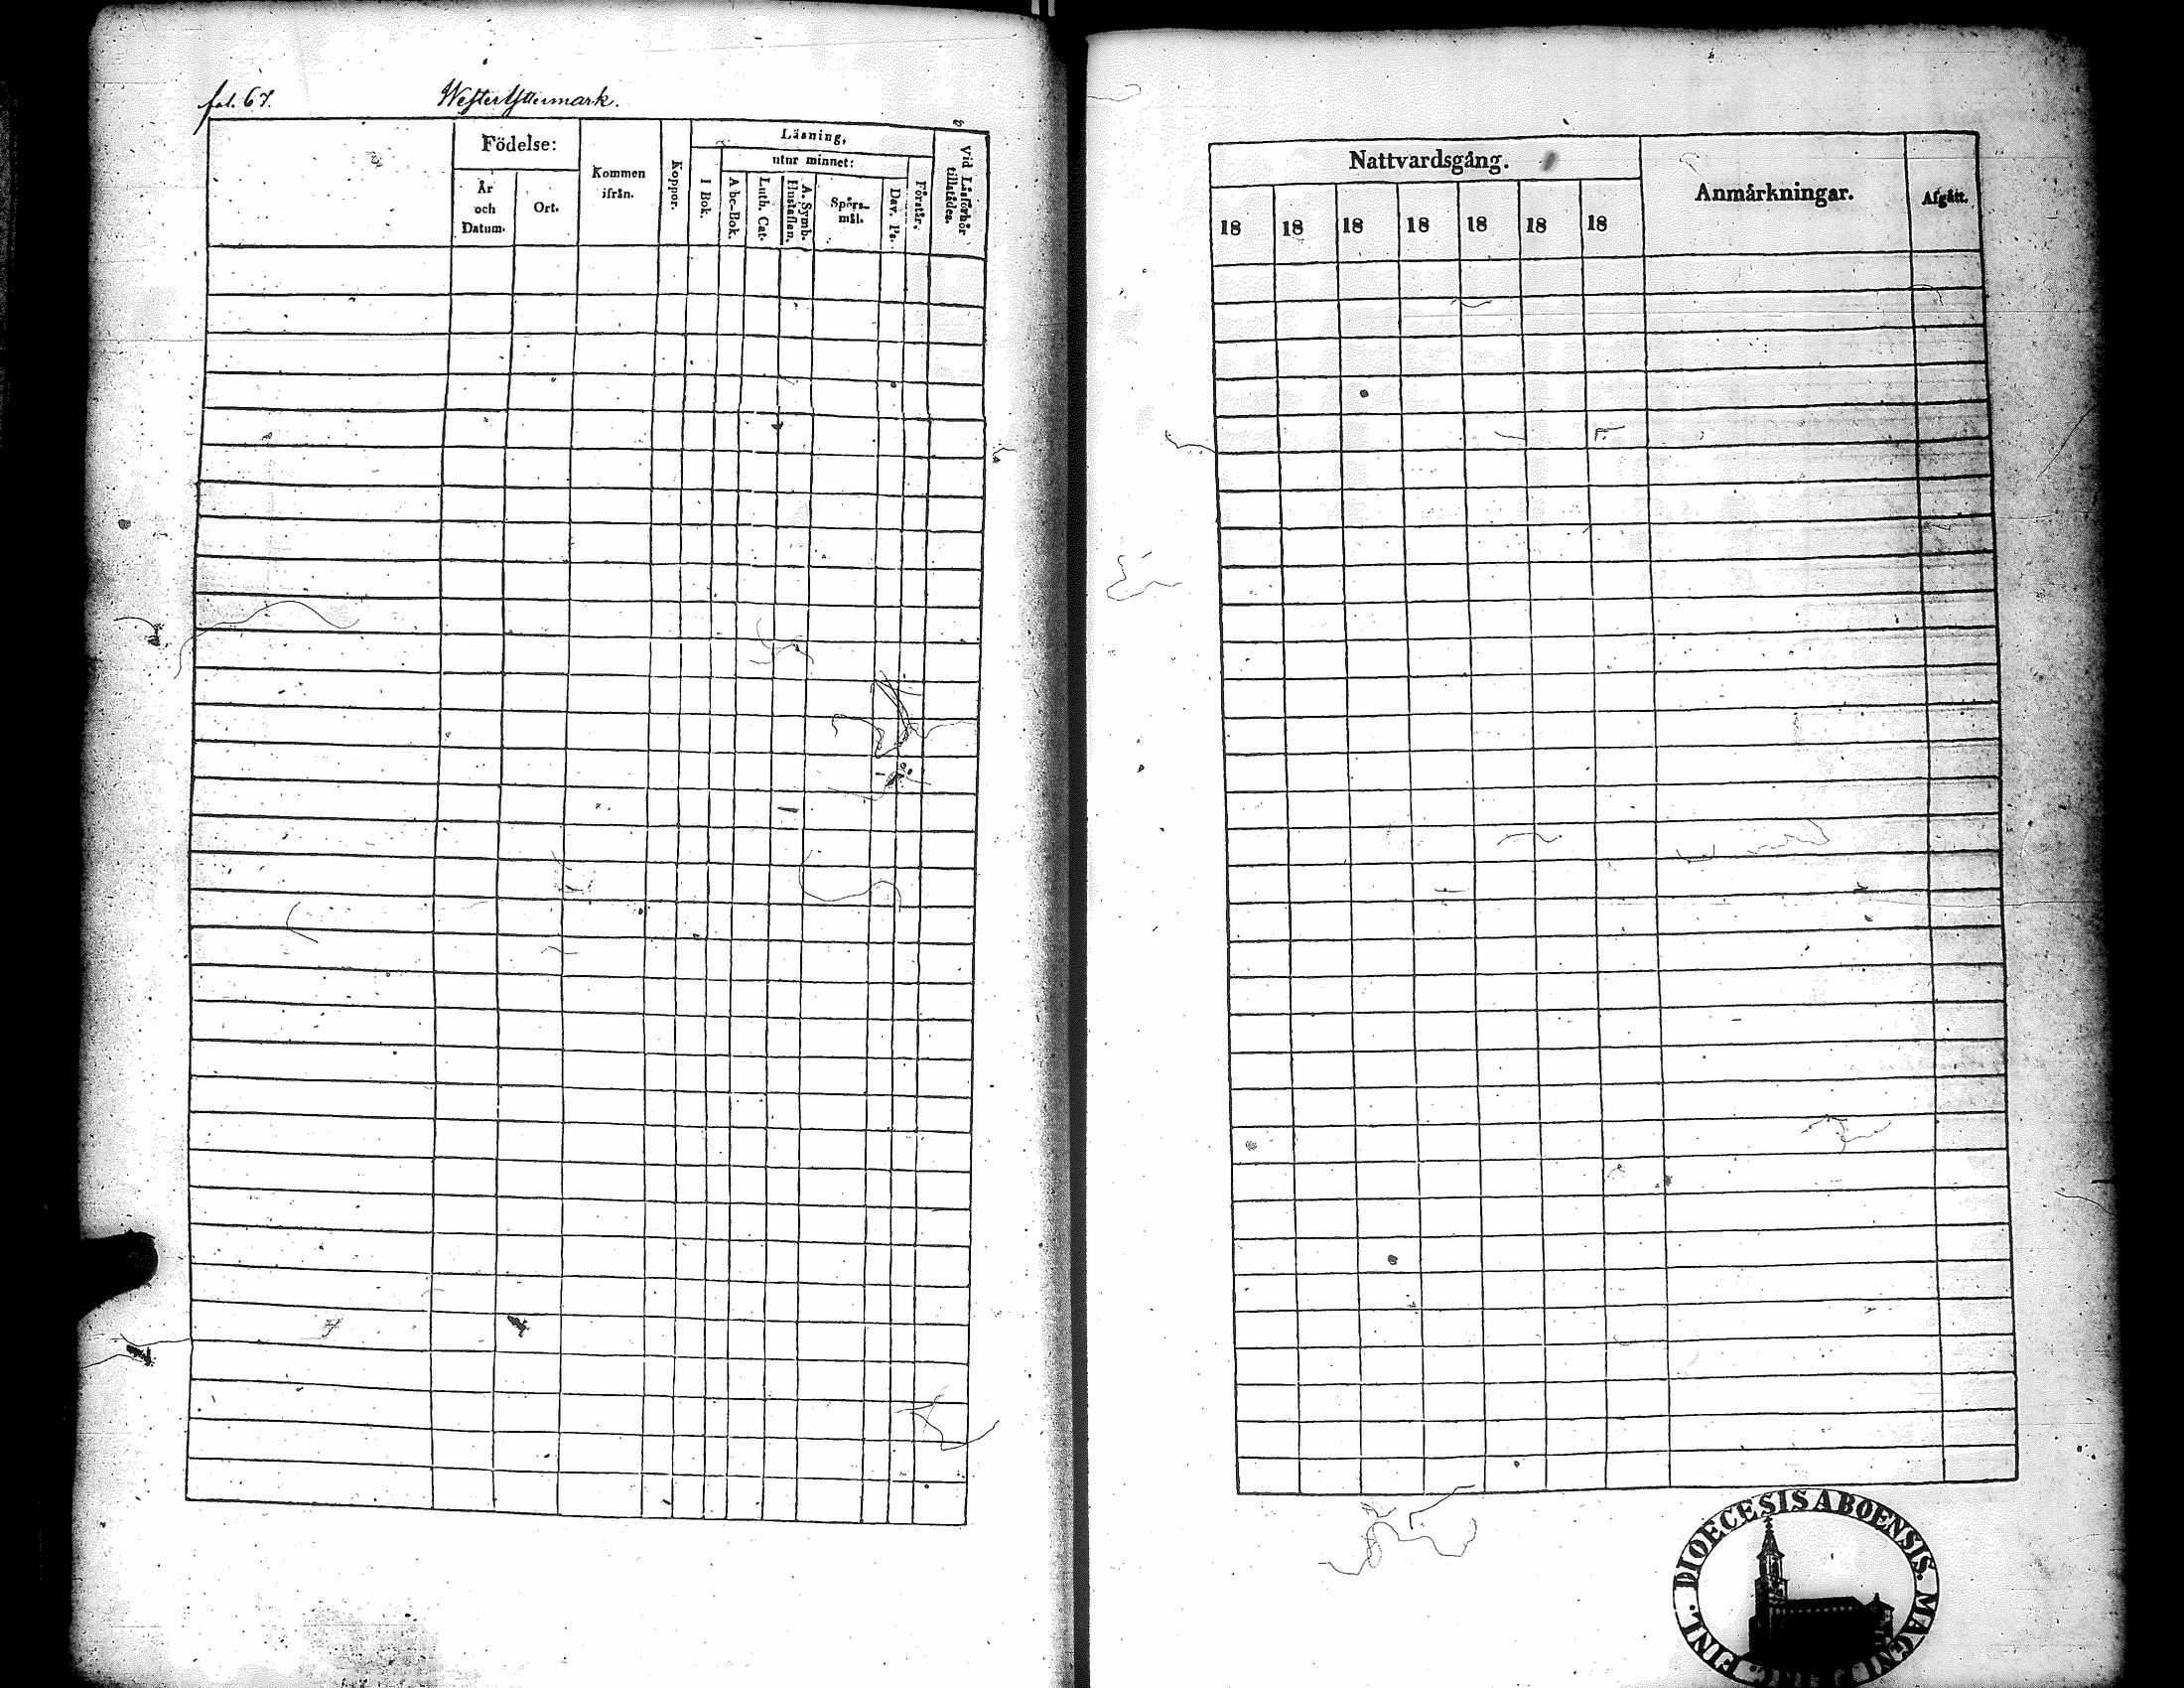 fol. 67. WesterYttermark.
Födelse:
År
och
Datum.
Ort.
Kommen
ifrån.
Koppor.
Läsning,
I Bok.
utur minnet:
Abc-Bok.
Luth. Cat.
A. Symb.
Hustaflan.
Spörs-
mål.
Dav. Ps.
Förstår.
Vid Läsförhör
tillstädes.
Nattvardsgång.
18 18 18 18 18 18 18
Anmärkningar.
Afgått.
DIOECESIS ABOENSIS. MAGNI
FINL.